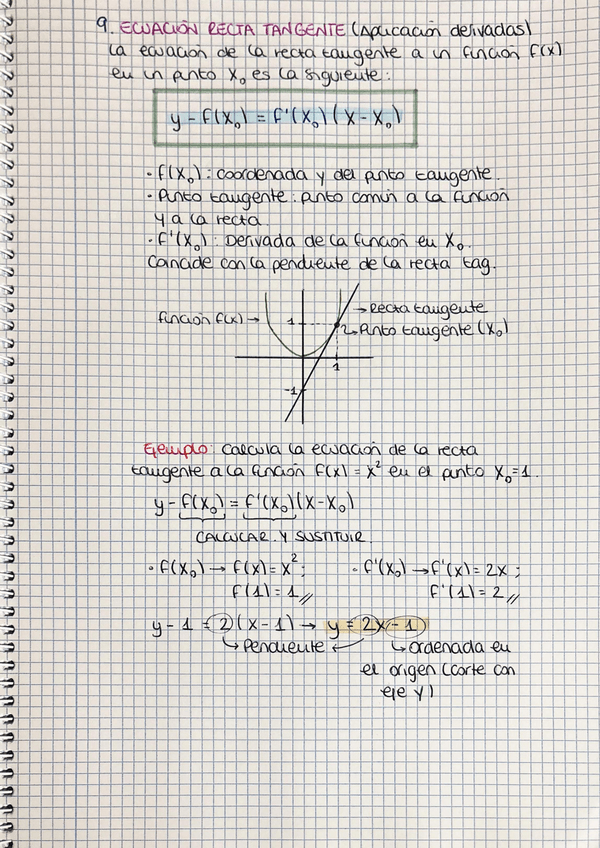 9. ECUACIÓN RECTA TANGENTE (Aplicación derivadas)
La ecuación de la recta tangente a un función f(x)
en un punto X₀ es la siguiente:
y - f(X₀) = f'(X₀)(X - X₀)
· f(X₀): coordenada y del punto tangente.
· Punto tangente: punto común a la función
y a la recta.
· f'(X₀): Derivada de la función en X₀.
Coincide con la pendiente de la recta tag.
función f(x) →
1
→ Recta tangente
↳ Punto tangente (X₀)
1
-1
Ejemplo: Calcula la ecuación de la recta
tangente a la función f(x) = x² en el punto X₀ = 1.
y - f(X₀) = f'(X₀)(X - X₀)
CALCULAR Y SUSTITUIR.
· f(X₀) → f(x) = x²; · f'(X₀) → f'(x) = 2x;
f(1) = 1 // f'(1) = 2 //
y - 1 = 2(x - 1) → y = 2x - 1
↳ Pendiente ↵ ↳ Ordenada en
el origen (corte con
eje y)